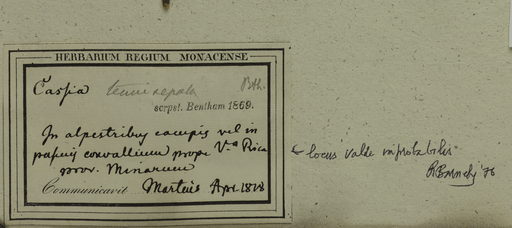 HERBARIUM REGIUM MONACENSE.
Cassia tenuisepala Bth.
scrpst. Bentham 1869.
In alpestribus campis vel in
pascuis convallium prope Va Rica
prov. Minarum
Communicavit Martius Apr. 1818
← locus valde improbabilis
R Barneby '76